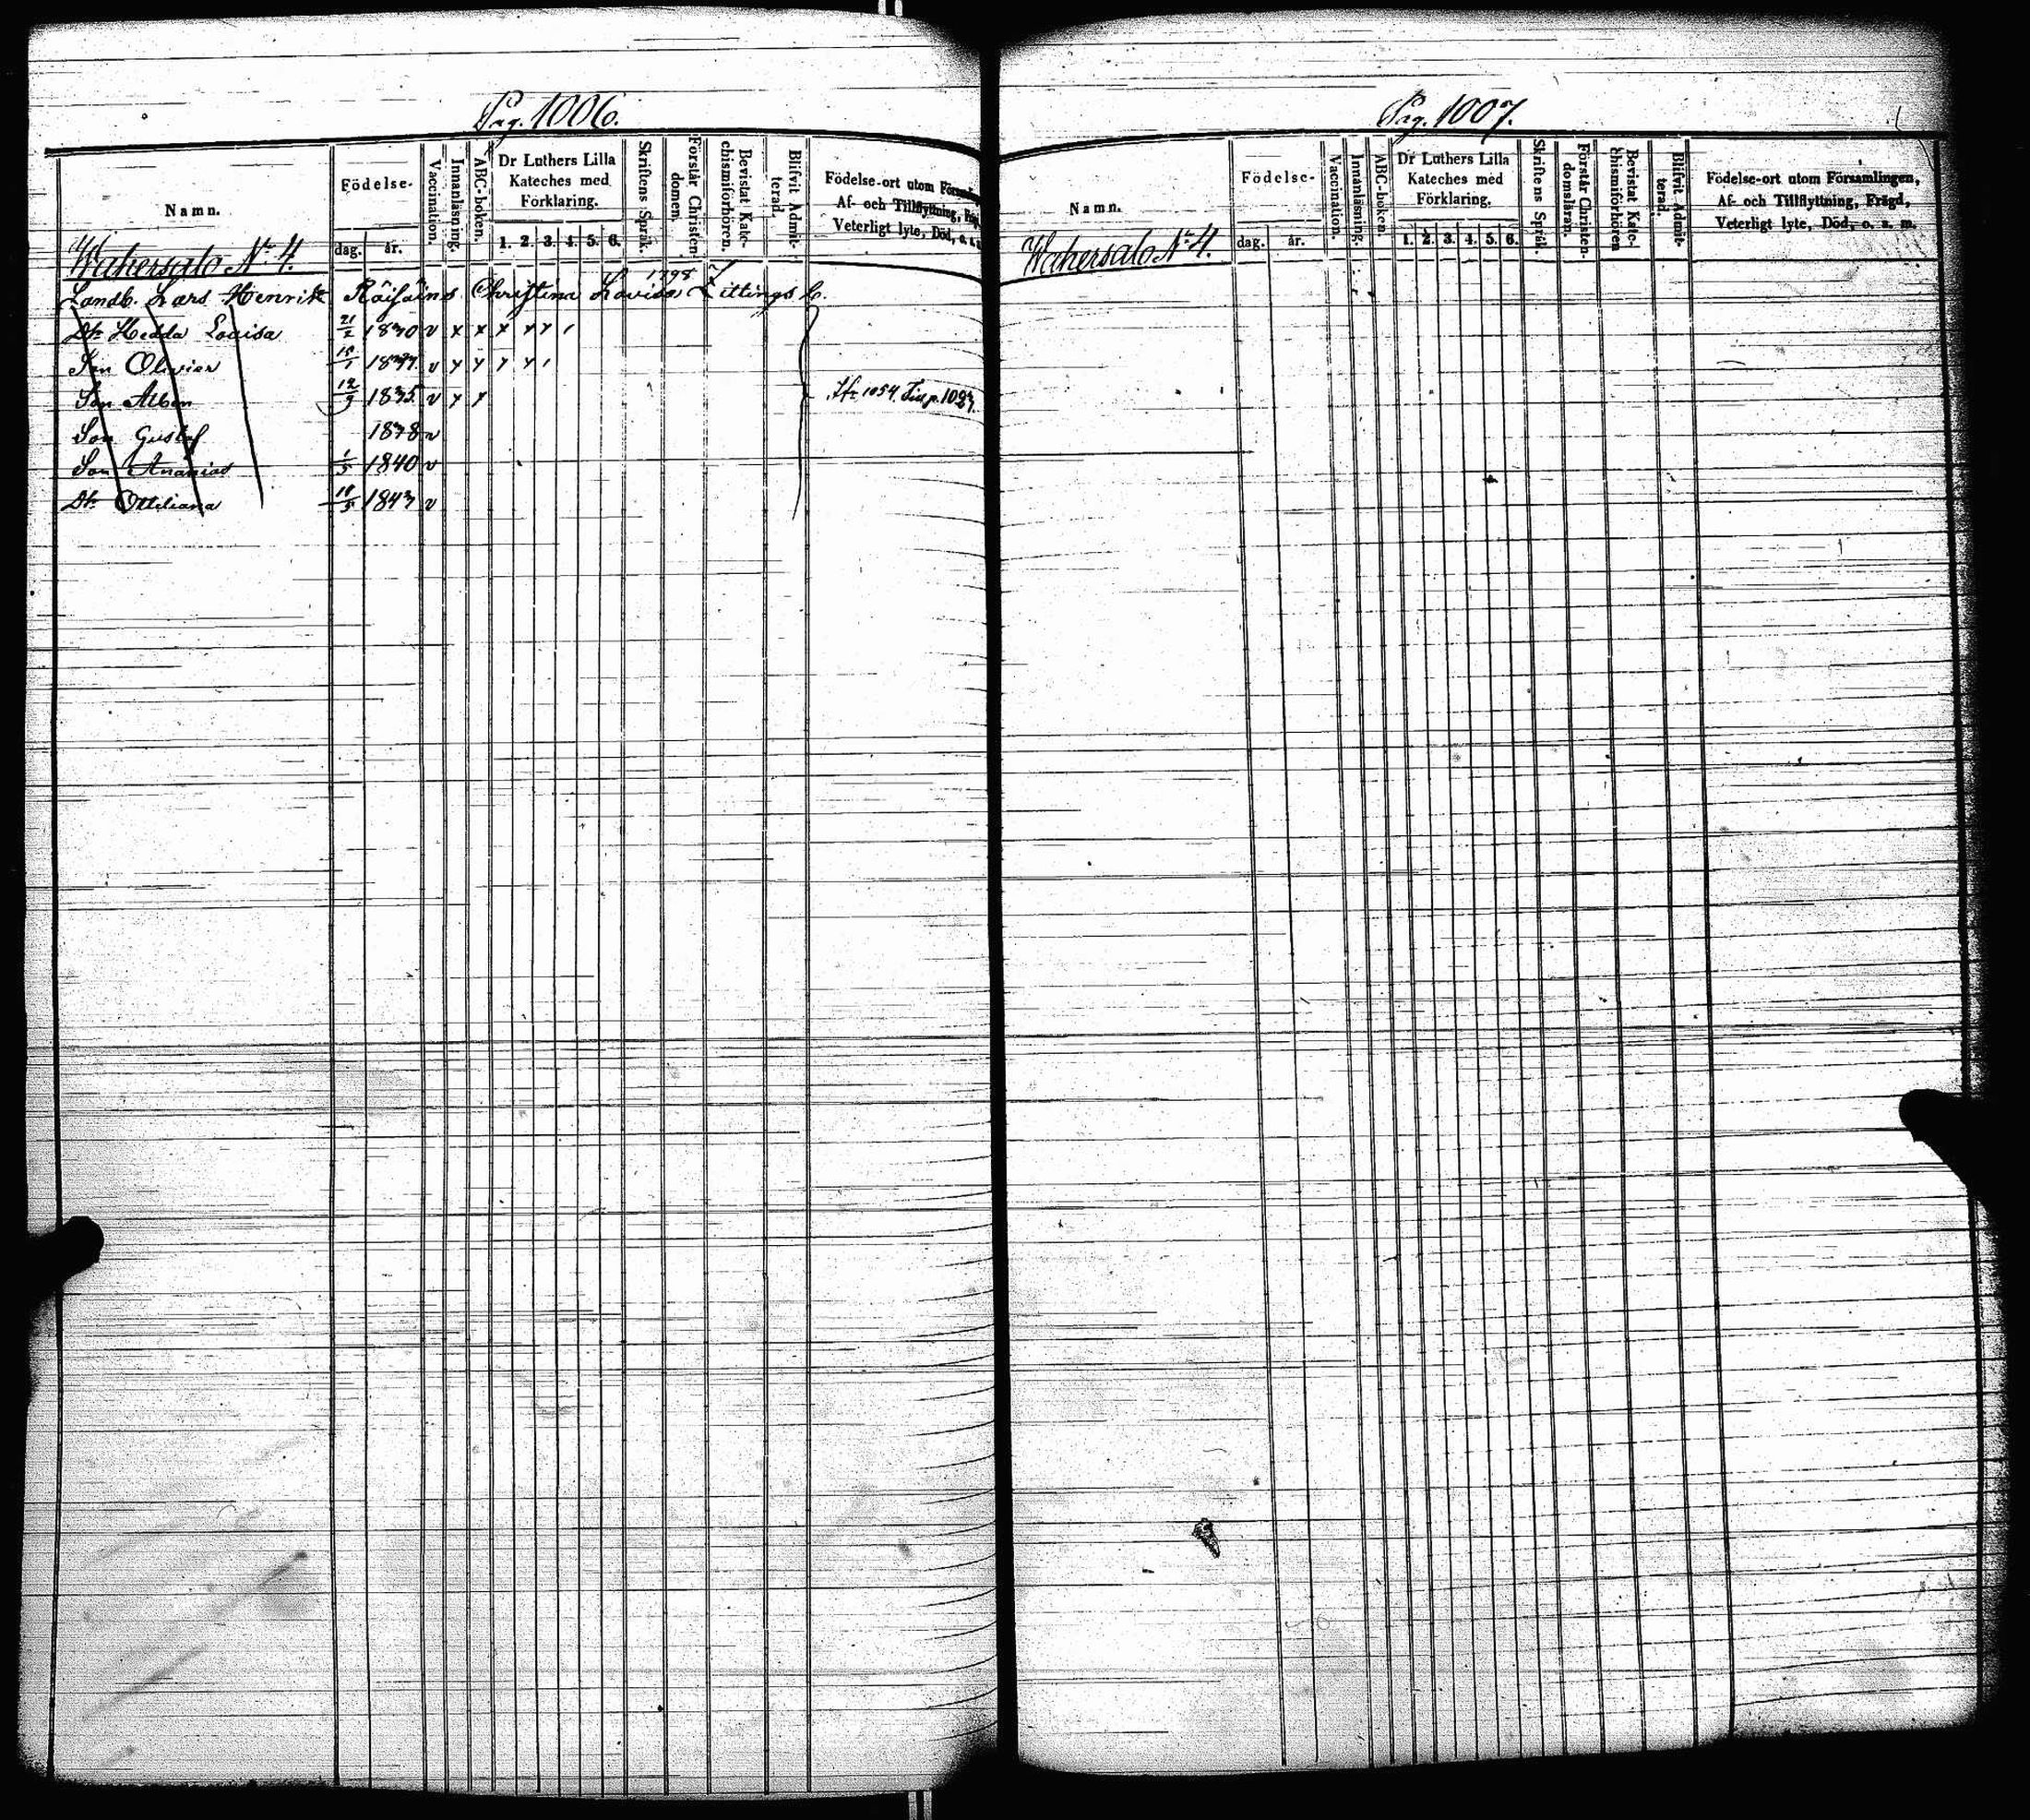 Pag. 1006.
Namn.
Födelse-
dag. år.
Vaccination.
Innanläsning.
ABC-boken.
Dr Luthers Lilla
Kateches med
Förklaring.
1. 2. 3. 4. 5. 6.
Skriftens Språk.
Förstår Christen-
domen.
Bevistat Kate-
chismiförhören.
Blifvit Admit-
terad.
Födelse-ort utom
Af- och Tillflyttning,
Veterligt lyte, Död, o. s.
Wahersalo No 4.
1798
Landb. Lars Henrik Räisäins Christina Lovisa Zittings b.
Dr Hedda Lovisa 21/2 1830 v x x x x x
Son Olivier 1/1 v x x x x
Son Alben 12/9 1835 v x x
1054 1027.
Son Gustaf 1838 v
Son Ananias 1/5 1840 v
Dr Ottiliana /5 1843 v
Pag. 1007.
Namn.
Födelse-
dag. år.
Vaccination.
Innanläsning.
ABC-boken.
Dr Luthers Lilla
Kateches med
Förklaring.
1. 2. 3. 4. 5. 6.
Skriftens Språk.
Förstår Christen-
domsläran.
Bevistat Kate-
chismiförhören
Blifvit Admit-
terad.
Födelse-ort utom Församlingen,
Af- och Tillflyttning, Frägd,
Veterligt lyte, Död, o. s. m.
Wahersalo No 4.